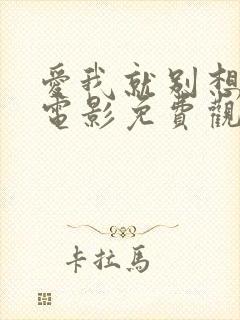 愛我就别想
電影免費觀
卡拉馬